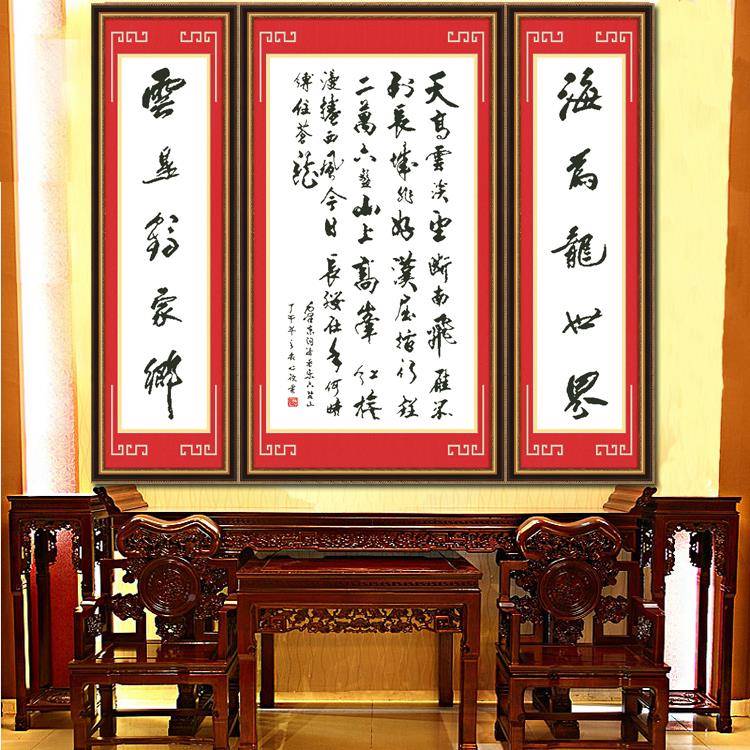 海為龍世界
天高雲淡望斷南飛雁不
到長城非好漢屈指行程
二萬六盤山上高峯紅旗
漫捲西風今日長纓在手何時
縛住蒼龍
毛澤東詞清平樂六盤山
雲是鶴家鄉